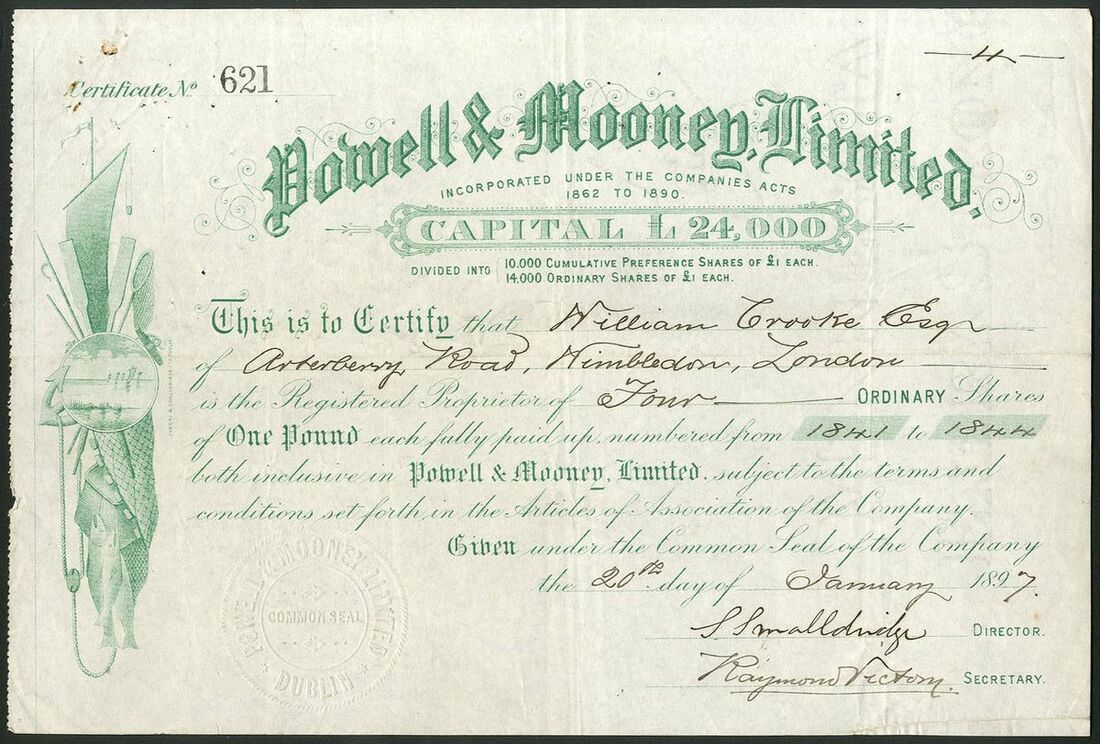 Certificate No. 621
4
Powell & Mooney, Limited.
INCORPORATED UNDER THE COMPANIES ACTS
1862 TO 1890.
CAPITAL £ 24,000
DIVIDED INTO { 10.000 CUMULATIVE PREFERENCE SHARES OF £1 EACH.
14.000 ORDINARY SHARES OF £1 EACH.
This is to Certify that William Crooke Esqr
of Arterberry Road, Wimbledon, London
is the Registered Proprietor of Four ORDINARY Shares
of One Pound each fully paid up, numbered from 1841 to 1844
both inclusive in Powell & Mooney, Limited, subject to the terms and
conditions set forth, in the Articles of Association of the Company.
Given under the Common Seal of the Company
the 20th day of January 1897.
S Smalldridge DIRECTOR.
Raymond Victory. SECRETARY.
POWELL & MOONEY LIMITED
COMMON SEAL
DUBLIN